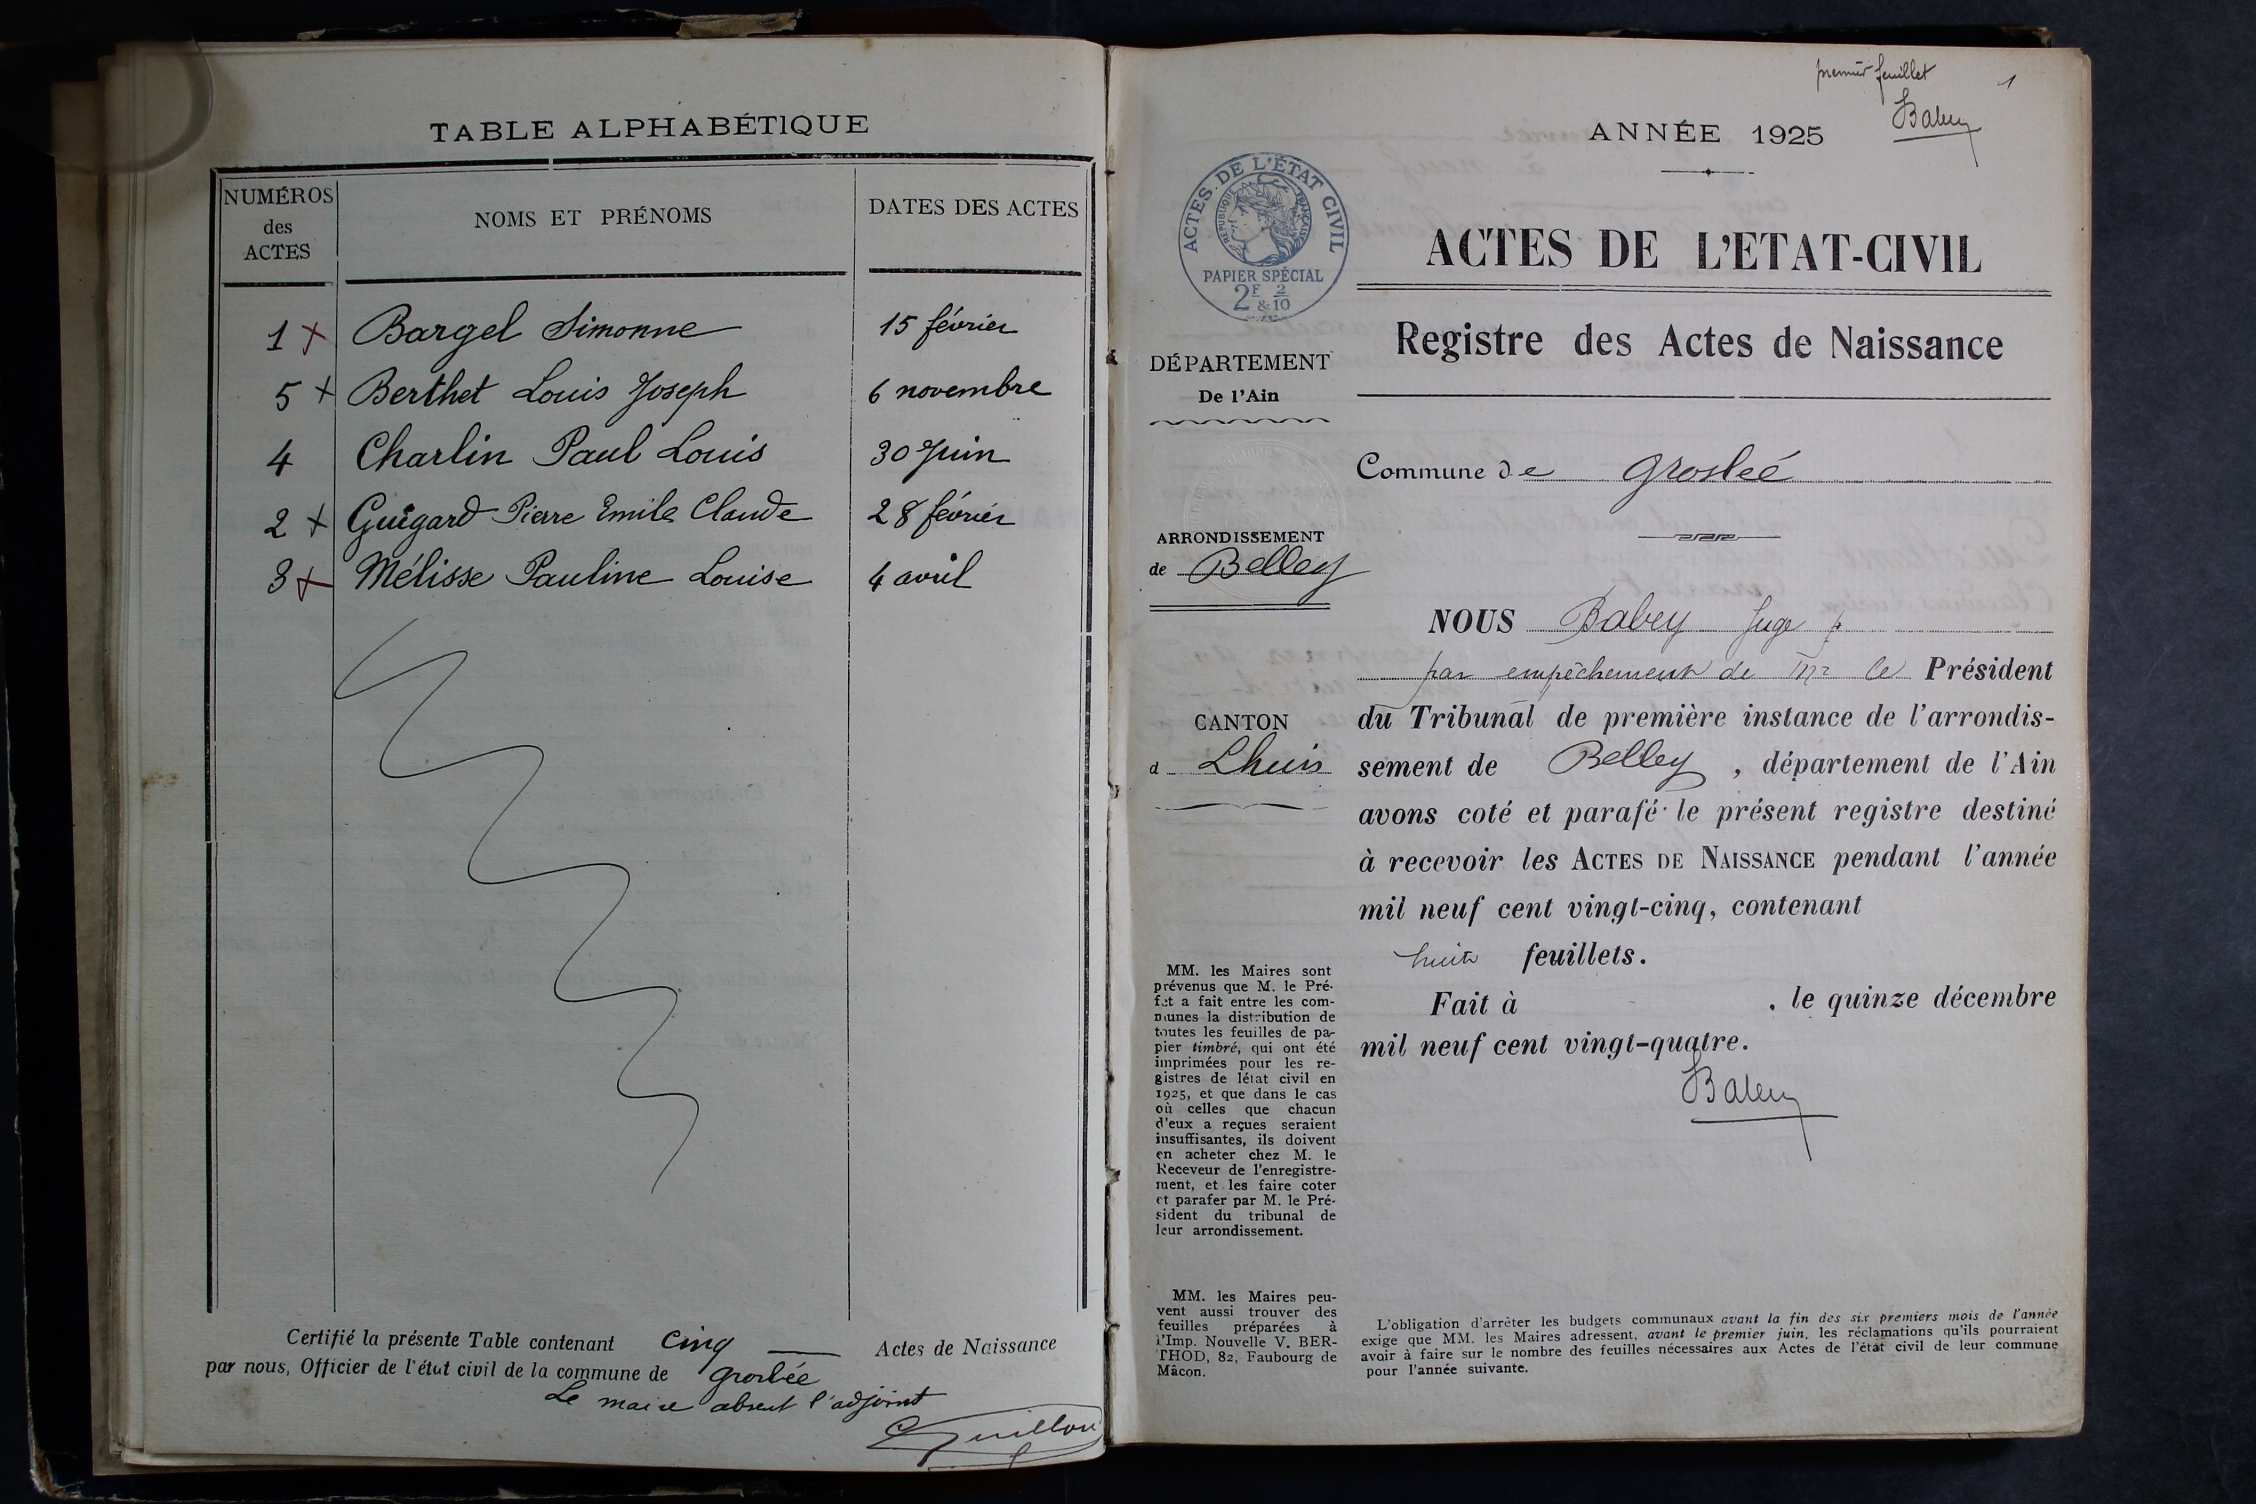 TABLE ALPHABÉTIQUE
NUMÉROS
des
ACTES
NOMS ET PRÉNOMS
DATES DES ACTES
1 x Bargel Simonne 15 février
5 x Berthet Louis Joseph 6 novembre
4 Charlin Paul Louis 30 Juin
2 x Guigard Pierre Emile Claude 28 février
3 x Mélisse Pauline Louise 4 avril
Certifié la présente Table contenant cinq Actes de Naissance
par nous, Officier de l'état civil de la commune de groslée
Le maire absent l'adjoint
Guillon
premier feuillet 1
Babey
ANNÉE 1925
ACTES DE L'ÉTAT CIVIL
RÉPUBLIQUE FRANÇAISE
PAPIER SPÉCIAL
2F & 2/10
ACTES DE L'ETAT-CIVIL
Registre des Actes de Naissance
DÉPARTEMENT
De l'Ain
Commune de Grosleé
ARRONDISSEMENT
de Belley
CANTON
d Lhuis
NOUS Babey Juge
par empêchement de Mr le Président
du Tribunal de première instance de l'arrondis-
sement de Belley, département de l'Ain
avons coté et parafé le présent registre destiné
à recevoir les ACTES DE NAISSANCE pendant l'année
mil neuf cent vingt-cinq, contenant
huit feuillets.
Fait à , le quinze décembre
mil neuf cent vingt-quatre.
Babey
MM. les Maires sont
prévenus que M. le Pré-
fet a fait entre les com-
munes la distribution de
toutes les feuilles de pa-
pier timbré, qui ont été
imprimées pour les re-
gistres de létat civil en
1925, et que dans le cas
où celles que chacun
d'eux a reçues seraient
insuffisantes, ils doivent
en acheter chez M. le
Receveur de l'enregistre-
ment, et les faire coter
et parafer par M. le Pré-
sident du tribunal de
leur arrondissement.
MM. les Maires peu-
vent aussi trouver des
feuilles préparées à
l'Imp. Nouvelle V. BER-
THOD, 82, Faubourg de
Mâcon.
L'obligation d'arrêter les budgets communaux avant la fin des six premiers mois de l'année
exige que MM. les Maires adressent, avant le premier juin, les réclamations qu'ils pourraient
avoir à faire sur le nombre des feuilles nécessaires aux Actes de l'état civil de leur commune
pour l'année suivante.